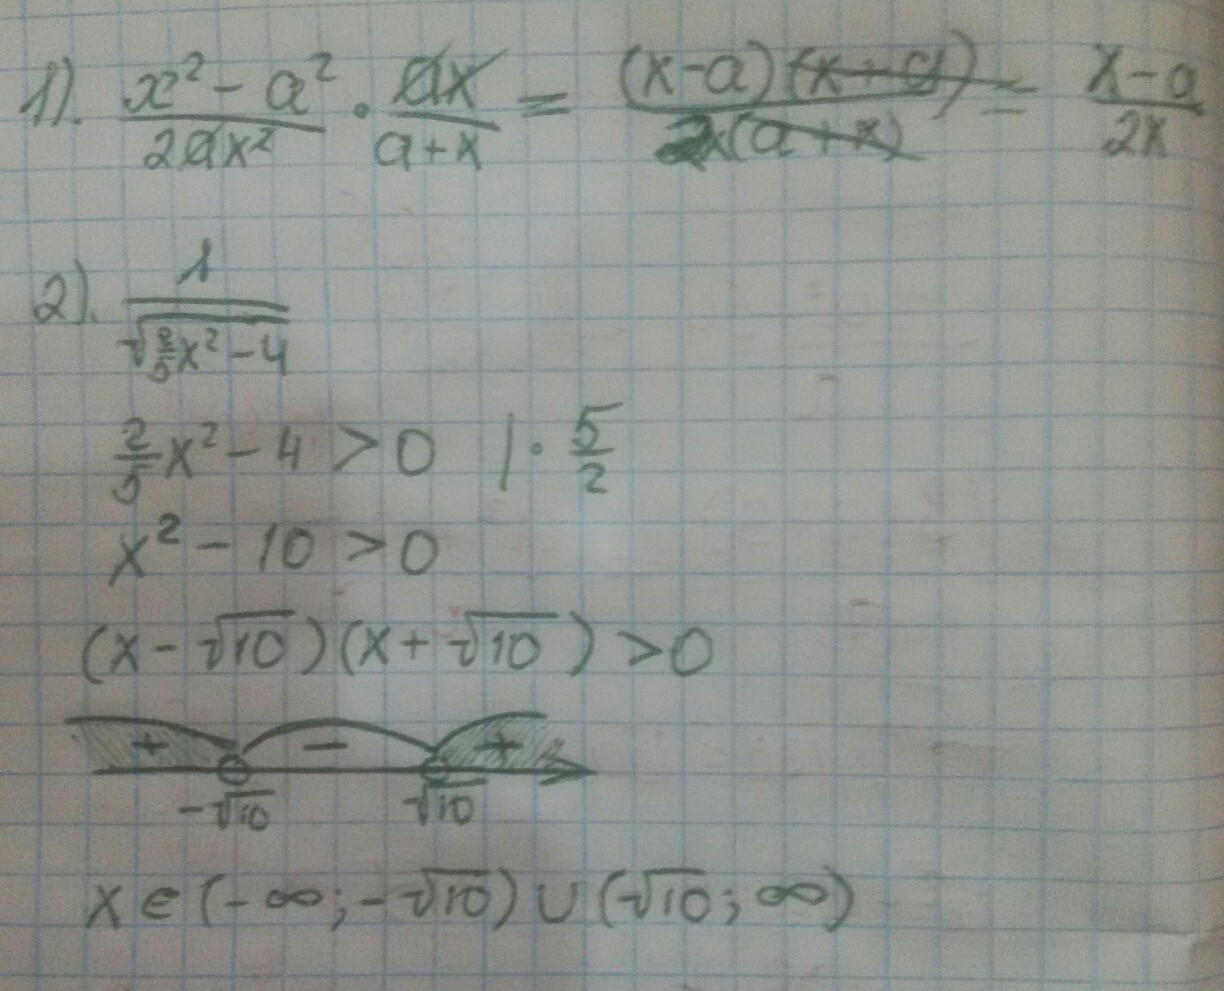 1). \frac{x² - a²}{2ax²} · \frac{ax}{a + x} = \frac{(x - a)(x + a)}{2x(a + x)} = \frac{x - a}{2x}
2). \frac{1}{\sqrt{\frac{2}{5}x² - 4}}
\frac{2}{5}x² - 4 > 0 | · \frac{5}{2}
x² - 10 > 0
(x - √10)(x + √10) > 0
+ - +
-√10 √10
x ∈ (-∞; -√10) ∪ (√10; ∞)